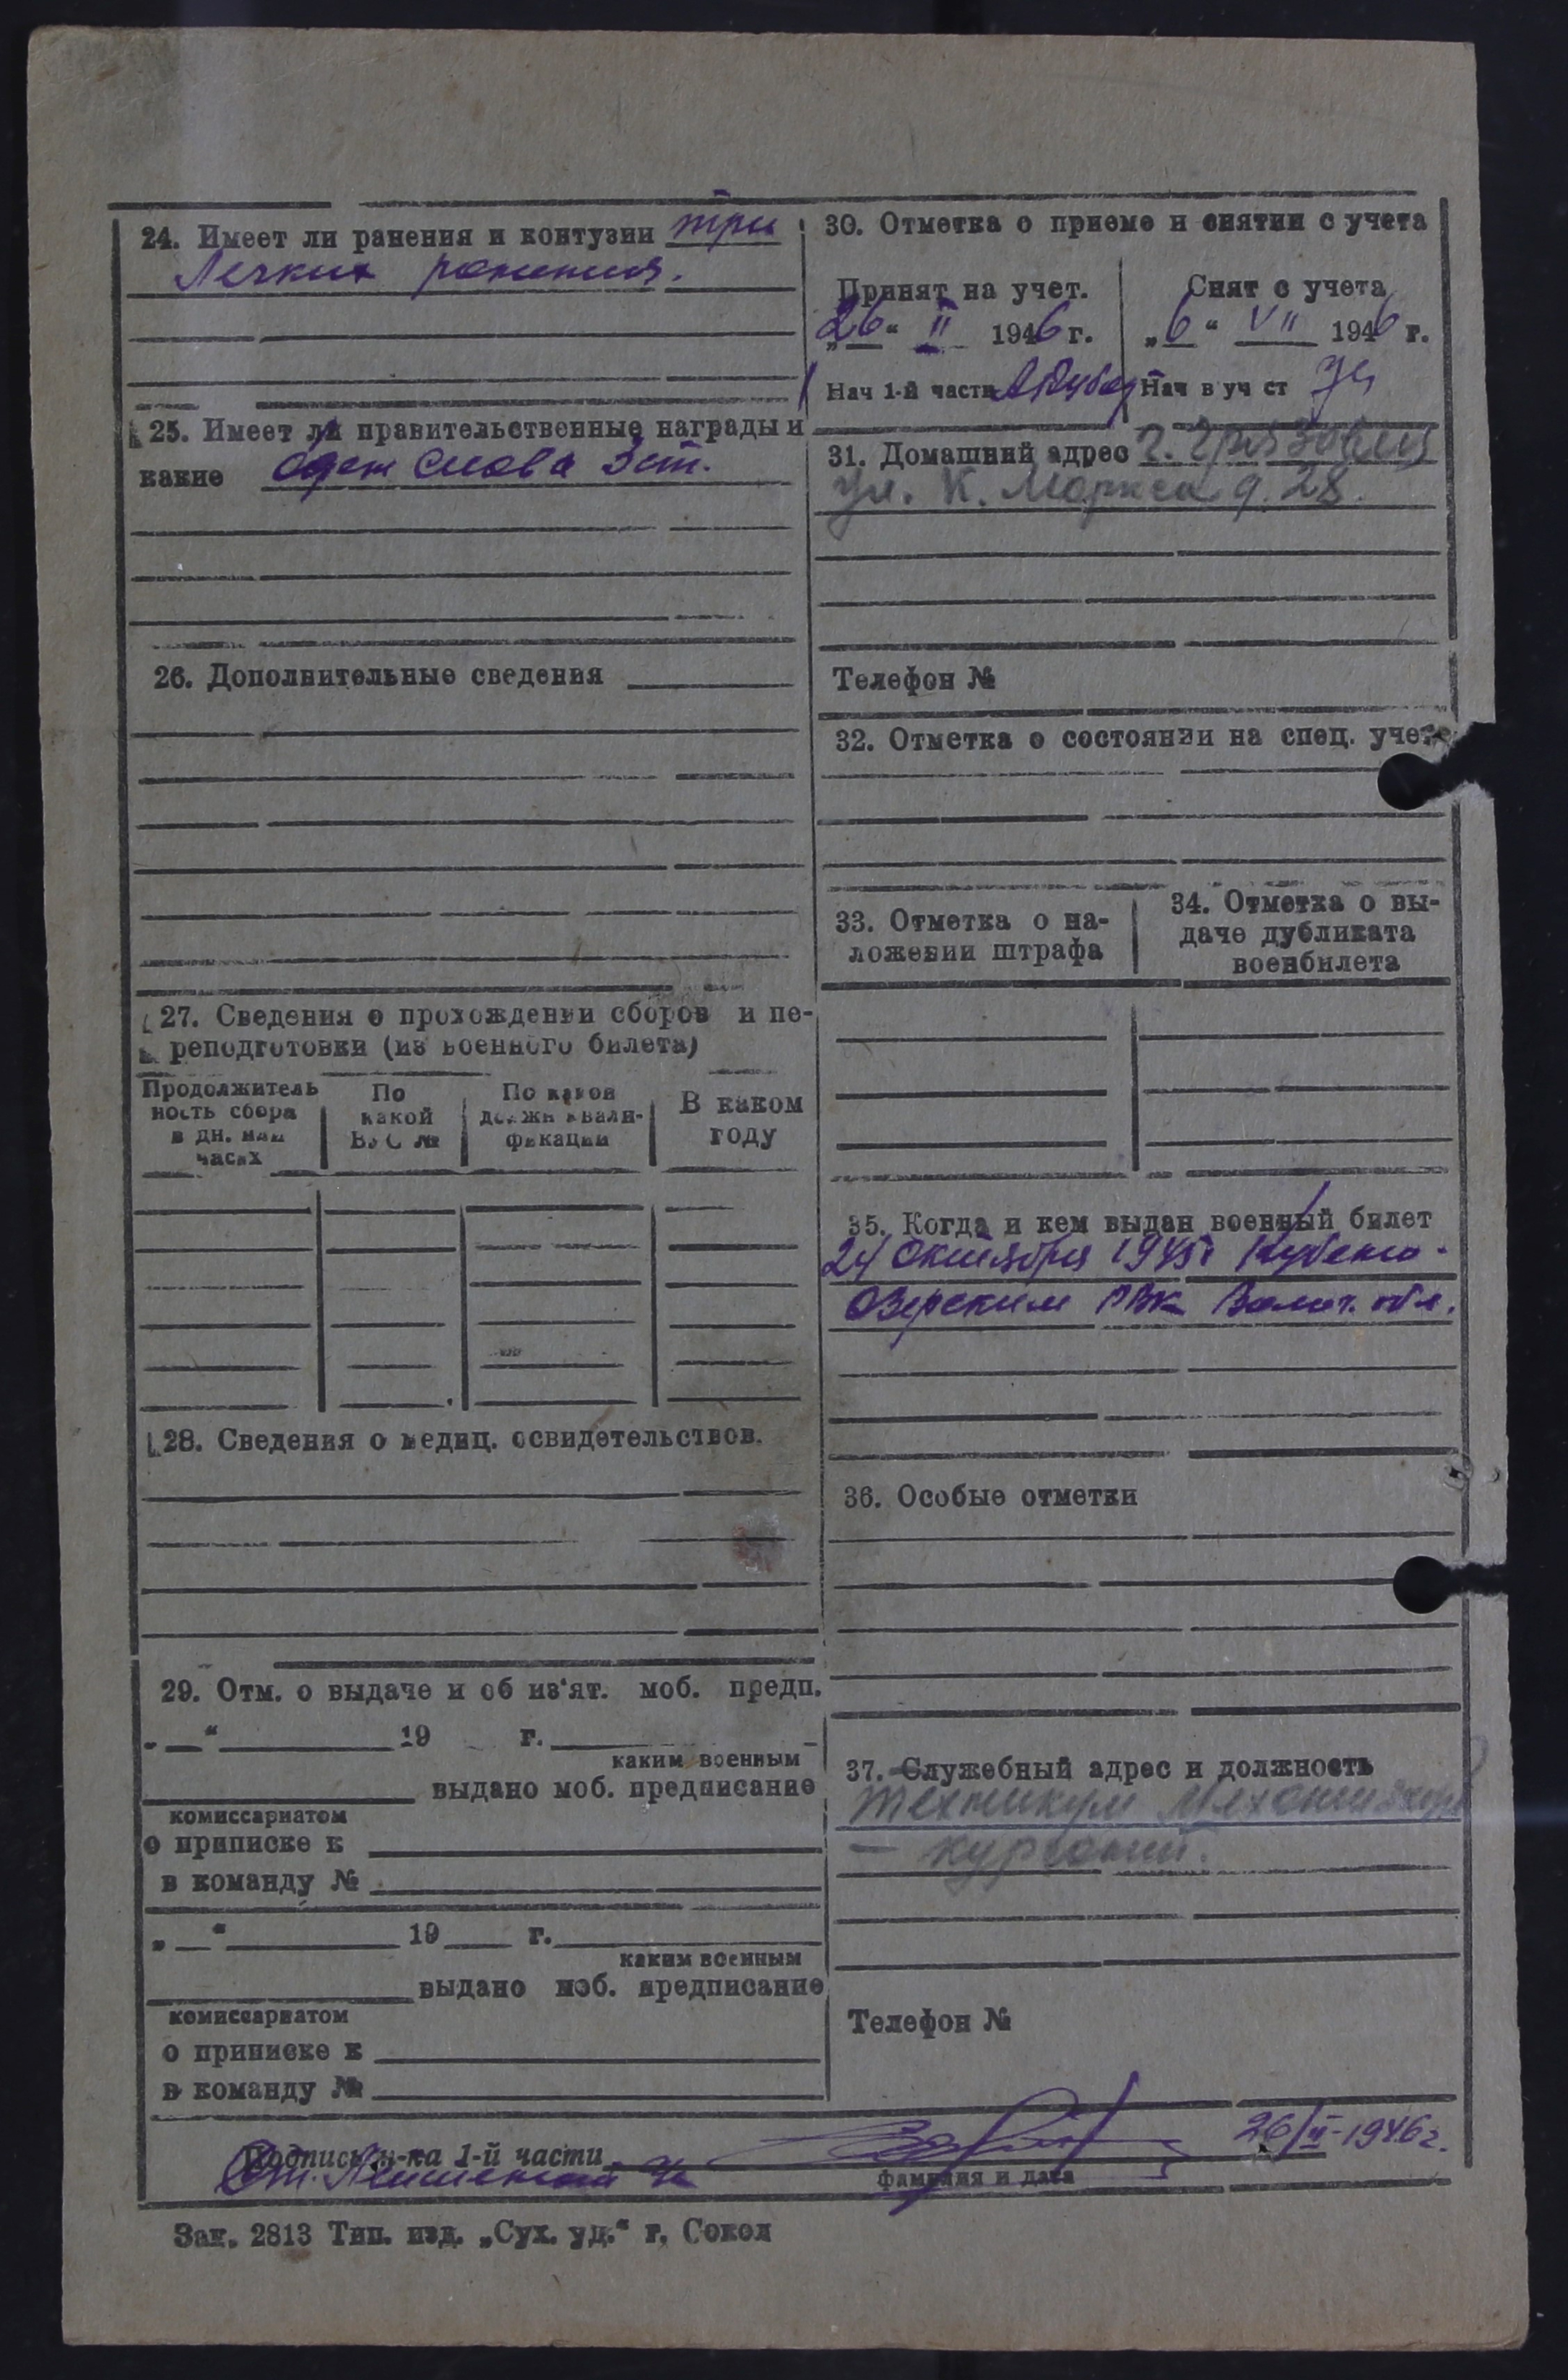 24. Имеет ли ранения и контузии три
Легких ранения.
25. Имеет ли правительственные награды и
какие Орден Слова 3 ст.
26. Дополнительные сведения
27. Сведения о прохождении сборов и пе-
реподготовки (из военного билета)
Продолжитель
ность сбора
в дн. или
часах
По
какой
ВУС №
По какой
должн квали-
фикации
В каком
году
28. Сведения о медиц. освидетельствов.
29. Отм. о выдаче и об из'ят. моб. предп.
„ “ 19 г.
каким военным
выдано моб. предписание
комиссариатом
о приписке к
в команду №
„ “ 19 г.
каким военным
выдано моб. предписание
комиссариатом
о приписке к
в команду №
30. Отметка о приеме и снятии с учета
Принят на учет.
„26“ II 1946 г.
Нач 1-й части
Снят с учета
„6“ VII 1946 г.
Нач в уч ст
31. Домашний адрес г. Грязовец
ул. К. Маркса д. 28.
Телефон №
32. Отметка о состоянии на спец. учете
33. Отметка о на-
ложении штрафа
34. Отметка о вы-
даче дубликата
военбилета
35. Когда и кем выдан военный билет
24 Октября 1945г Кубено-
Озерским РВК Волог. обл.
36. Особые отметки
37. Служебный адрес и должность
Техникум
– курсант.
Телефон №
Подпись н-ка 1-й части
26/II-1946г.
Фамилия и дата
Зак. 2813 Тип. изд. „Сух. уд.“ г. Сокол